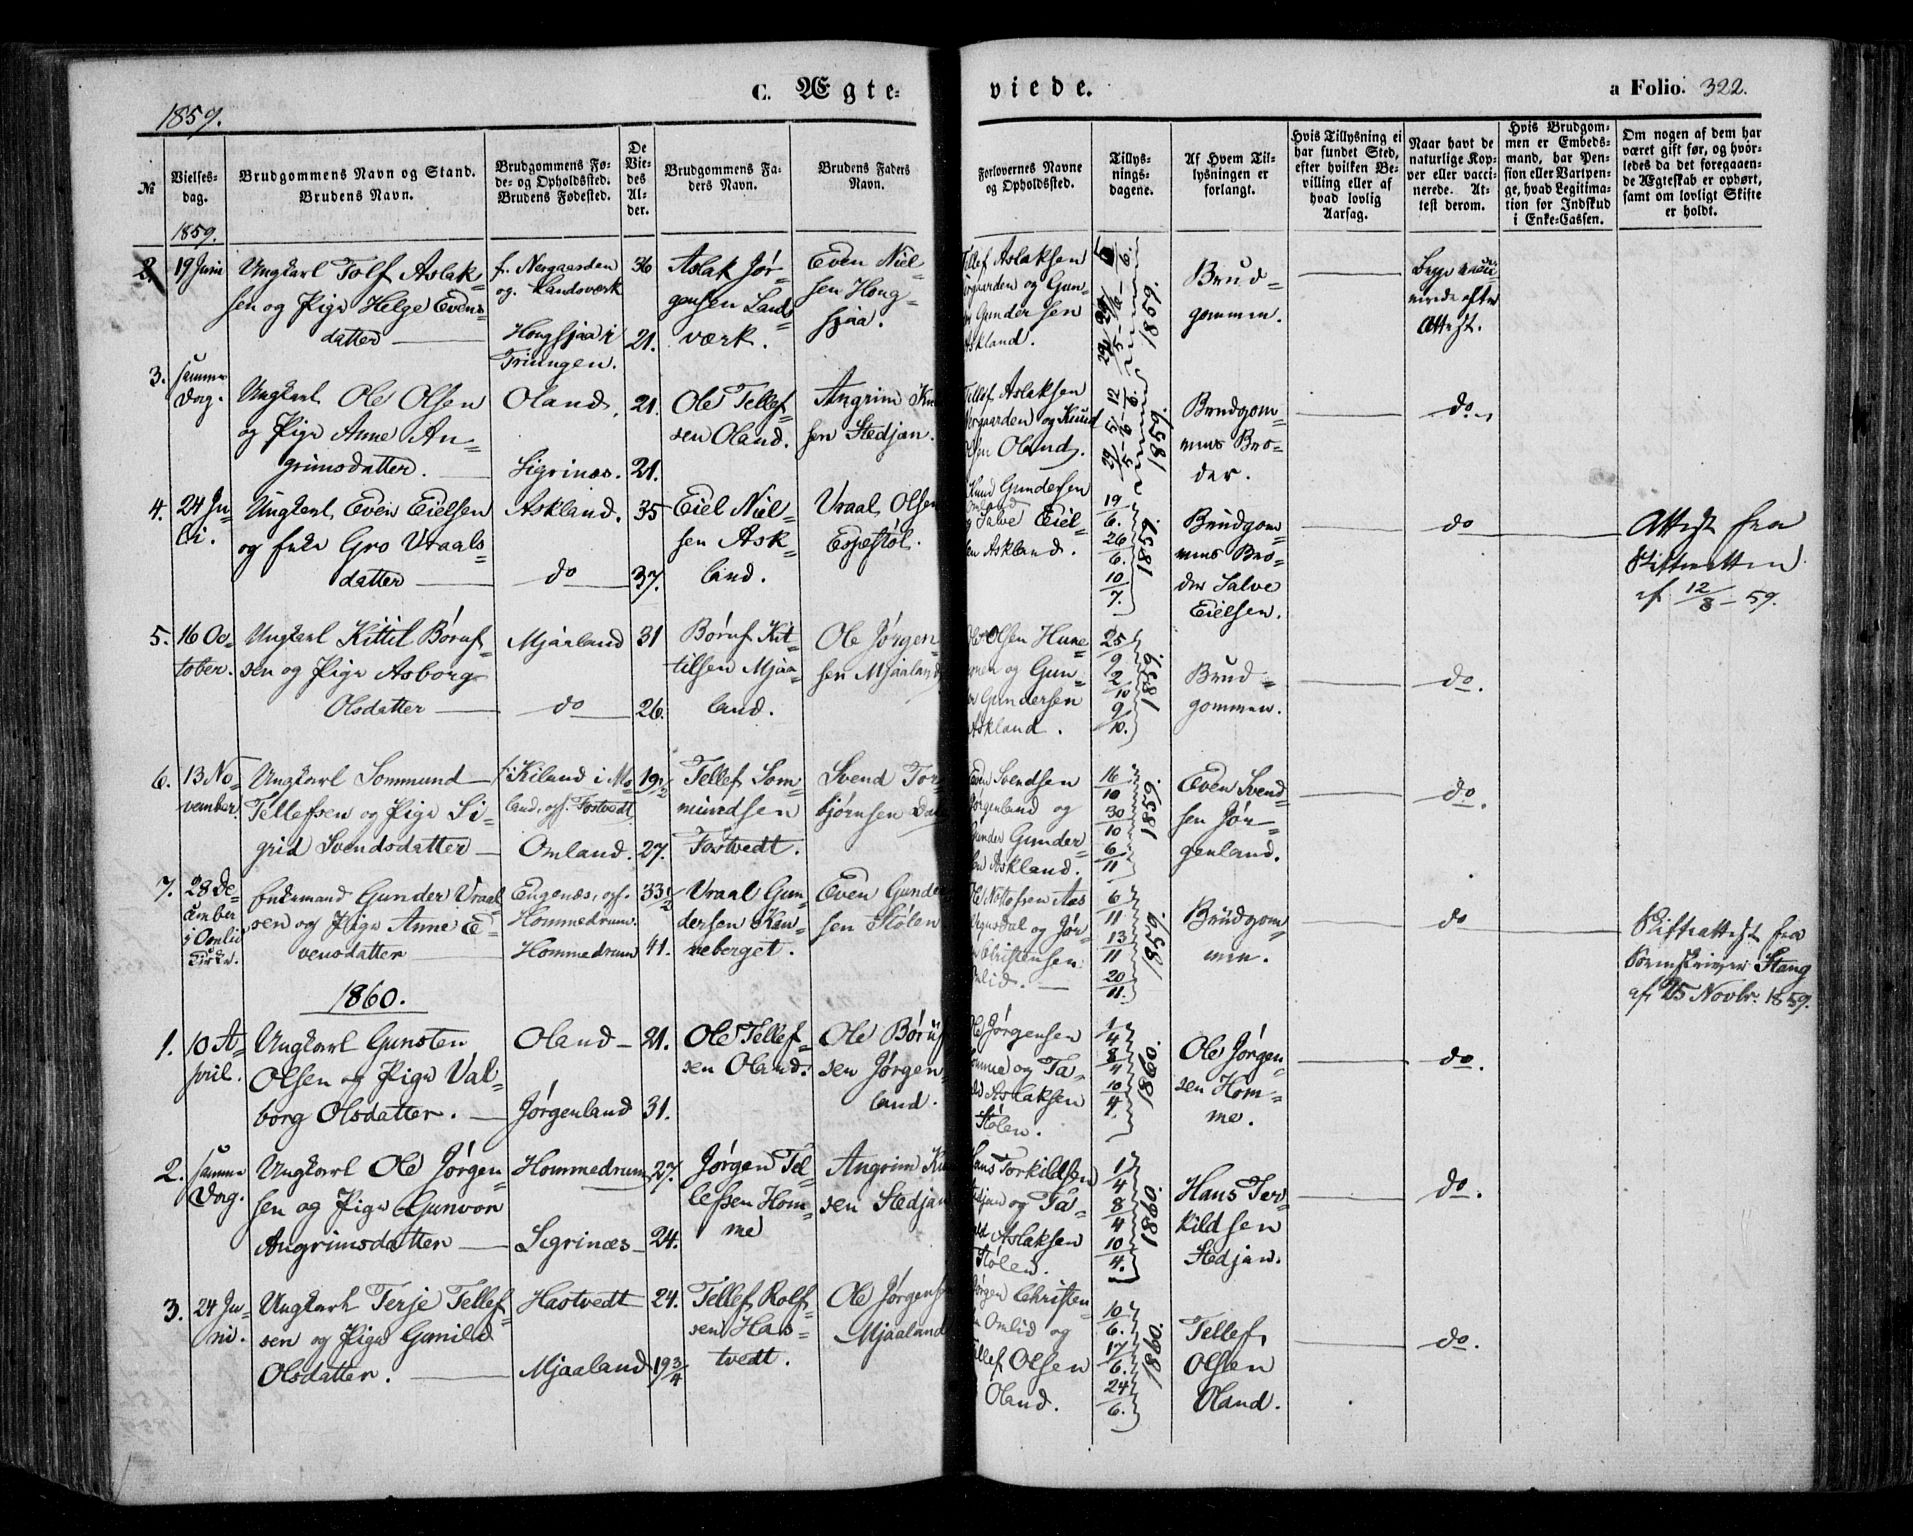 C. Ægte-
viede.
a Folio. 322.
1859.
№
Vielses-
dag.
Brudgommens Navn og Stand.
Brudens Navn.
Brudgommens Fø-
de- og Opholdssted.
Brudens Fødested.
De
Vie-
des
Al-
der.
Brudgommens Fa-
ders Navn.
Brudens Faders
Navn.
Forlovernes Navne
og Opholdssted.
Tillys-
nings-
dagene.
Af Hvem Til-
lysningen er
forlangt.
Hvis Tillysning ei
har fundet Sted,
efter hvilken Be-
villing eller af
hvad lovlig
Aarsag.
Naar havt de
naturlige Kop-
per eller vacci-
nerede. At-
test derom.
Hvis Brudgom-
men er Embeds-
mand, har Pen-
sion eller Vartpen-
ge, hvad Legitima-
tion for Indskud
i Enke-Cassen.
Om nogen af dem har
været gift før, og hvor-
ledes da det foregaaen-
de Ægteskab er ophørt,
samt om lovligt Skifte
er holdt.
1859.
2. 19 Juni
Ungkarl Tolf Aslak-
sen og Pige Helge Evens-
datter
f. Nergaarden
og. Landsværk
Hongsjaa i
Triungen.
36
21.
Aslak Jør-
gensen Lands-
værk.
Even Niel-
sen Hong-
sjaa.
Tellef Aslaksen
og Gun-
Gundersen
Askland.
1859.
Brud-
gommen.
efter
Attest.
3. samme
Dag.
Ungkarl Ole Olsen
og Pige Anne An-
grimsdatter.
Oland.
Sigrinæs.
21.
21.
Ole Tellef-
sen Oland.
Angrim Knu
sen Stedjan.
Tellef Aslaksen
Nergaarden og Knud
Olsen Oland.
1859.
Brudgom-
mens Bro-
der.
do.
4. 24 Ju-
li.
Ungkarl Even Eielsen
og Enke Gro Vraals-
datter
Askland.
do
35
37.
Eiel Niel-
sen Ask-
land.
Vraal Olsen
Espestøl.
Knud Gundersen
Omland
Salve Eiel-
sen Askland.
19/6.
26/6.
10/7.
1859
Brudgom-
mens Bro-
der Salve
Eielsen.
do
Attest fra
Skifteretten
af 12/8 - 59.
5. 16 Oc-
tober.
Ungkarl Kittil Børuf-
sen og Pige Asborg
Olsdatter
Mjaaland
do
31
26.
Børuf Kit-
tilsen Mjaa-
land.
Ole Jørgen-
sen Mjaaland
Olsen Hune-
og Gun-
Gundersen
Askland.
25/9
2/10
9/10.
1859.
Brud-
gommen.
do.
6. 13 No-
vember.
Ungkarl Sommund
Tellefsen og Pige Si-
grid Svendsdatter
f. Kiland i Mo-
land, opf. Tostvedt
Omland.
19 1/2
27.
Tellef Som-
mundsen
Tostvedt.
Svend Tor-
bjørnsen Dale
Even Svendsen
Jørgenland og
Gunder Gunder-
sen Askland.
16/10
30/10
6/11
1859
Even Svend-
sen Jør-
genland.
do.
7. 28 De-
cember
i Omlid
Kirke.
Enkemand Gunder Vraal-
sen og Pige Anne E-
vensdatter
Eugenæs, opf.
Hommedrum.
Hommedrum
33 1/2
41.
Vraal Gun-
dersen Kan-
neberget.
Even Gunder
sen Stølen
Aas
og Jør-
Christensen
Omlid.
6/11
13/11
20/11.
1859
Brudgom-
men.
do
Skifteattest fra
Sorenskriver Stang
af 25 Novbr. 1859.
1860.
1. 10 A-
pril.
Ungkarl Gunsten
Olsen og Pige Val-
borg Olsdatter.
Oland
Jørgenland
21.
31.
Ole Tellef-
sen Oland.
Ole Børuf
sen Jørgen-
land.
Ole Jørgensen
Homme og Ta-
Aslaksen
Stølen.
1/4
8/4
10/4.
1860.
Ole Jørgen-
sen Hom-
me.
do.
2. samme
Dag.
Ungkarl Ole Jørgen-
sen og Pige Gunvor
Angrimsdatter
Hommedrum
Sigrinæs
27.
24.
Jørgen Tel-
lefsen Hom-
me
Angrim Knu
sen Stedjan
Hans Torkildsen
Stedjan og Ta-
Aslaksen
Stølen.
1/4
8/4
10/4.
1860.
Hans Tor-
kildsen
Stedjan.
do.
3. 24 Ju-
ni.
Ungkarl Terje Tellef-
sen og Pige Gunild
Olsdatter.
Hastvedt
Mjaaland
24.
19 3/4
Tellef Rolf-
sen Has-
tvedt.
Ole Jørgensen
Mjaaland
Jørgen Christen-
Omlid og
Tellef Olsen
Oland.
10/6.
17/6.
24/6.
1860.
Tellef
Olsen
Oland.
do.